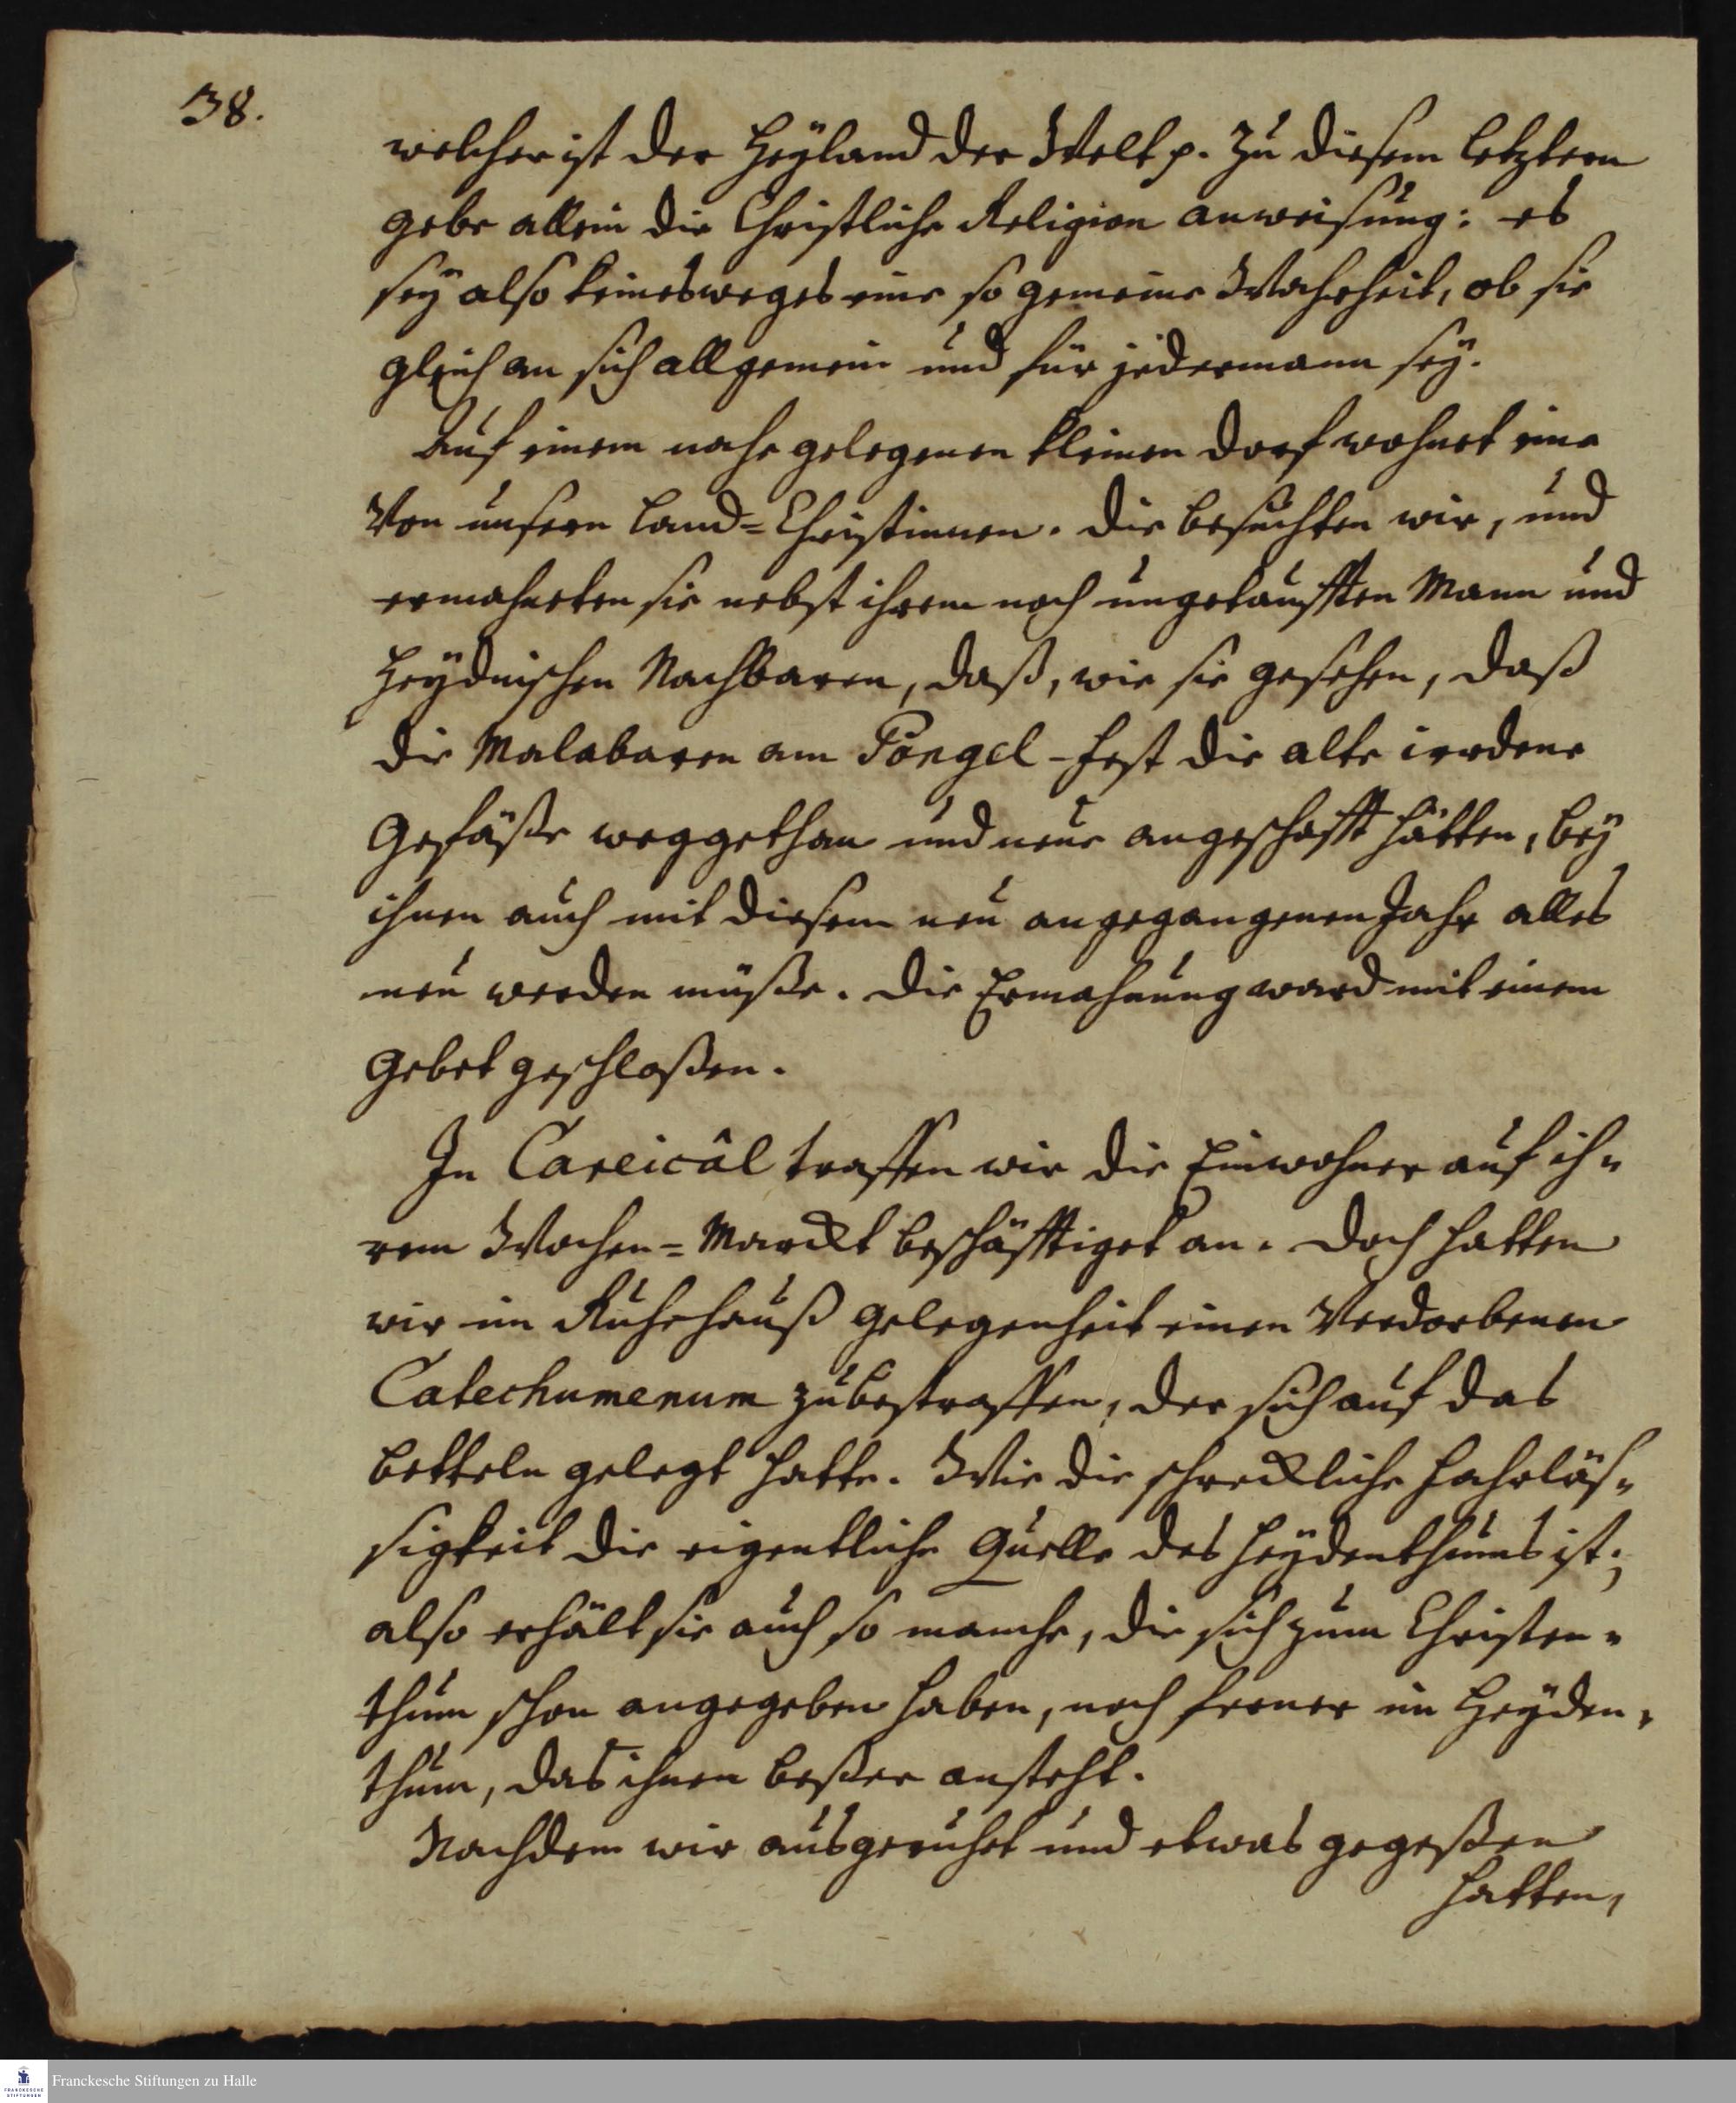 38.
welcher ist der Heyland der Welt p. Zu diesem letztern
gebe allein die Christliche Religion anweisung: es
sey also keinesweges eine so gemeine Wahrheit, ob sie
gleich an sich allgemein und für jedermann sey.
Auf einem nahe gelegenen kleinen Dorf wohnet eine
Von unsern Land=Christinnen. Die besuchten wir, und
ermahneten sie nebst ihrem noch ungetaufften Mann und
Heydnischen Nachbaren, daß, wie sie gesehen, daß
die Malabaren am Pongel-Fest die alte irrdene
Gefäße weggethan und neue angeschafft hätten, bey
ihnen auch mit diesem neu angegangenen Jahr alles
neu werden müße. Die Ermahnung ward mit einem
Gebet geschloßen.
In Careicâl traffen wir die Einwohner auf ih=
rem Wochen=Marckt beschäfftiget an. Doch hatten
wir im Ruhehauß gelegenheit einen Verdorbenen
Catechumenum zubestraffen, der sich auf das
betteln gelegt hatte. Wie die schreckliche Fahrläs=
sigkeit die eigentliche Quelle des Heydenthums ist;
also erhält sie auch so manche, die sich zum Christen=
thum schon angegeben haben, noch ferner im Heyden=
thum, das ihnen beßer ansteht.
Nachdem wir ausgeruhet und etwas gegeßen
hatten,
Franckesche Stiftungen zu Halle
FRANCKESCHE
STIFTUNGEN